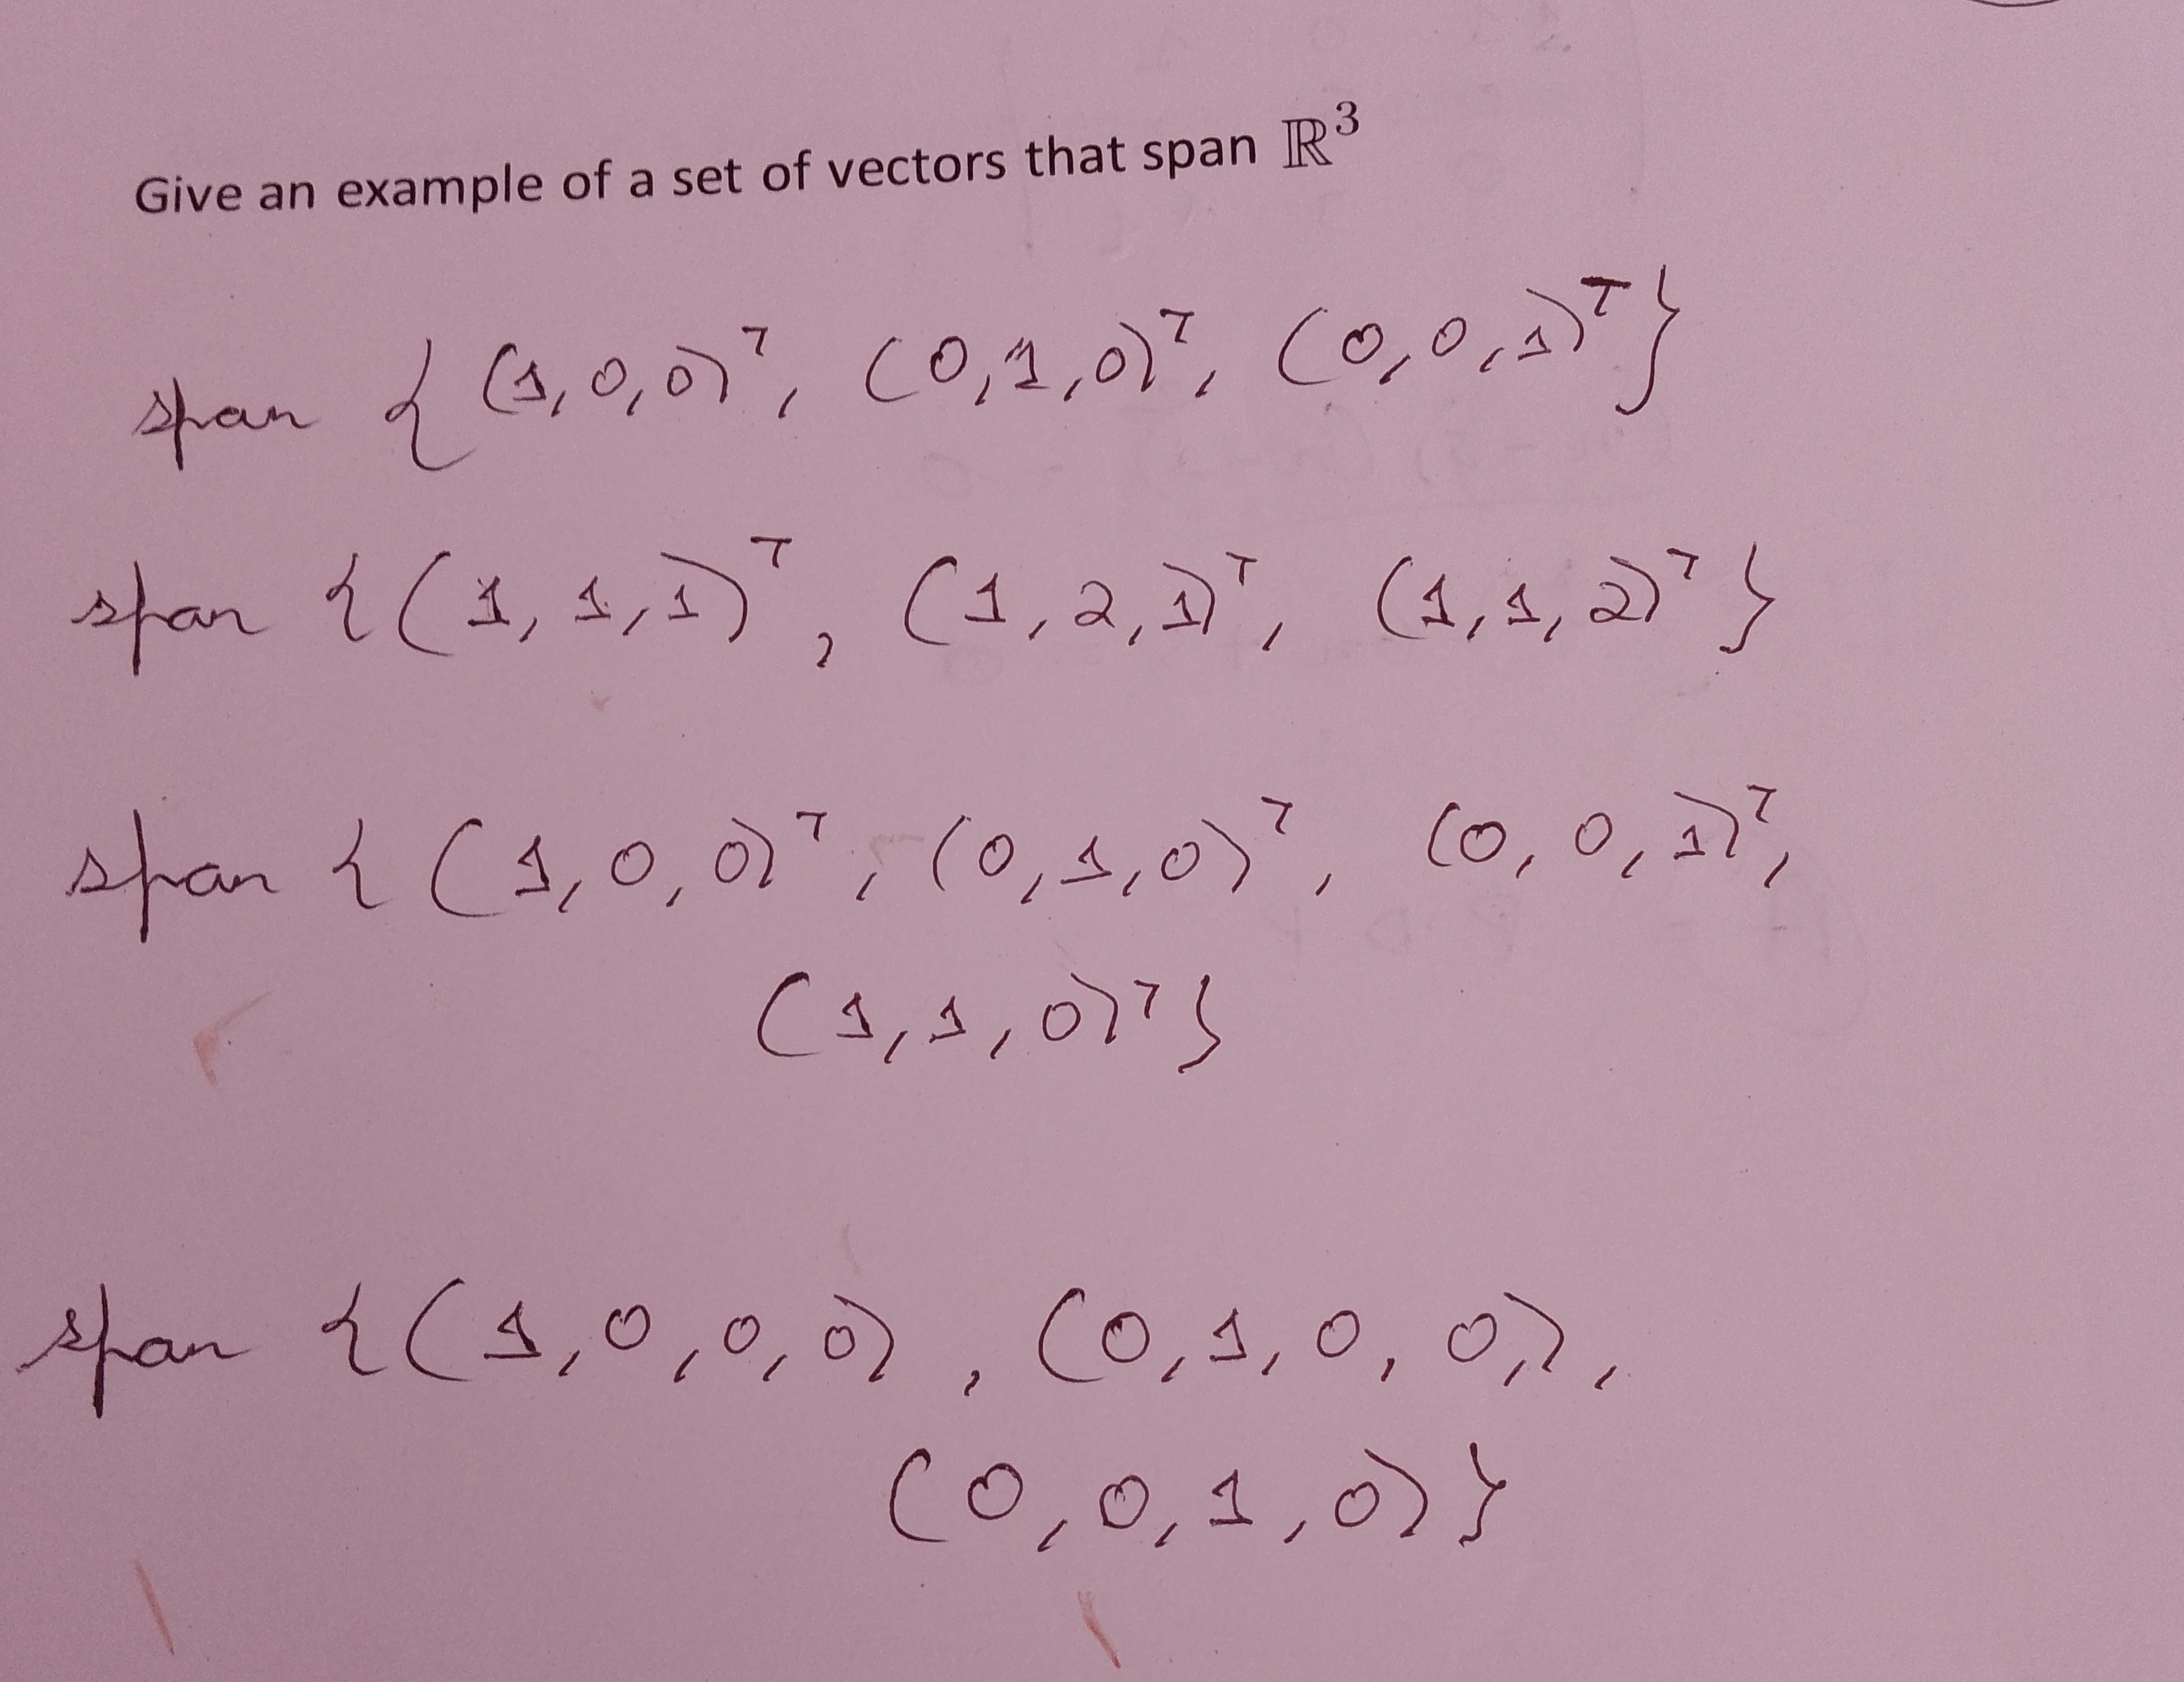 Give an example of a set of vectors that span ℝ³
span {(1,0,0)ᵀ, (0,1,0)ᵀ, (0,0,1)ᵀ}
span {(1,1,1)ᵀ, (1,2,1)ᵀ, (1,1,2)ᵀ}
span {(1,0,0)ᵀ, (0,1,0)ᵀ, (0,0,1)ᵀ,
(1,1,0)ᵀ}
span {(1,0,0,0), (0,1,0,0,),
(0,0,1,0)}